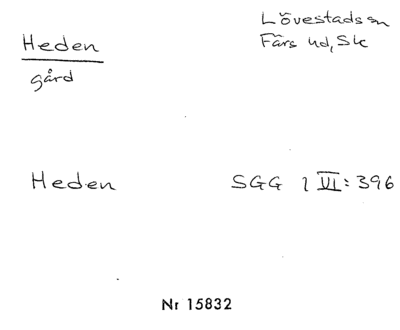 Heden
gård
Lövestads sn
Färs hd, Sk
Heden
SGG 1 VI: 396
Nr 15832